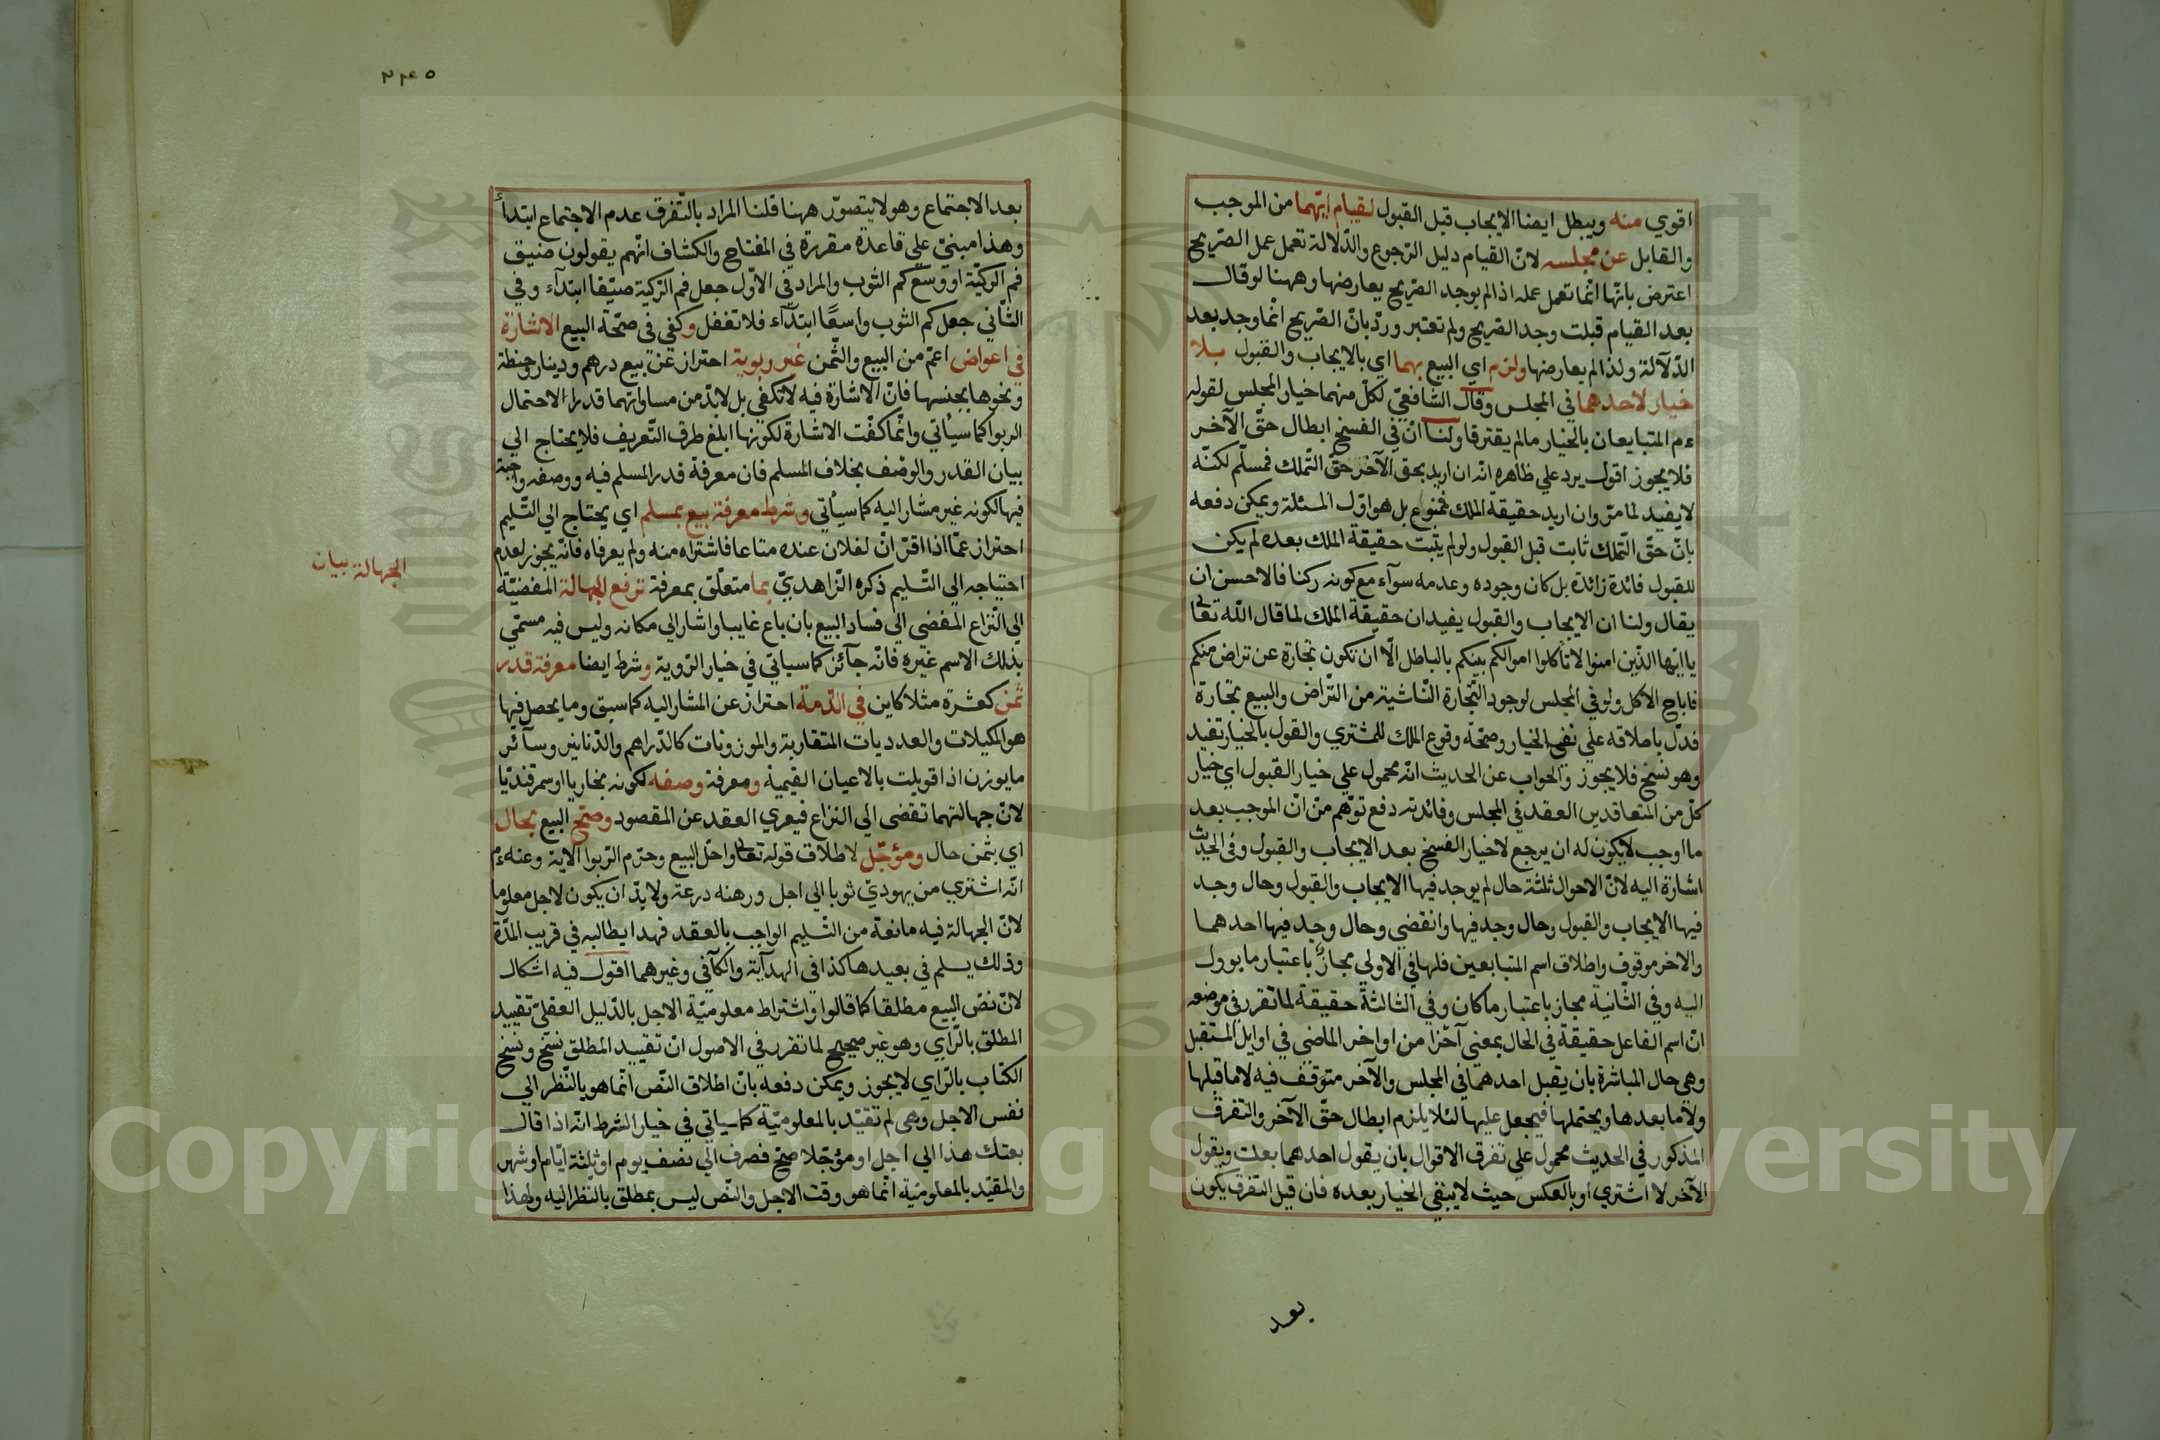 اقوي منه ويبطل ايضا الايجاب قبل القبول لقيام ايهما من الموجب
والقابل عن مجلسه لانّ القيام دليل الرّجوع والدّلالة تعمل عمل الصّريح
اعترض بانّها انّما تعمل عمله اذا لم يوجد الصّريح يعارضها وههنا لو قال
بعد القيام قبلت وجد الصّريح ولم تعتبر وردّ بانّ الصّريح انّما وجد بعد
الدّلالة ولذا لم يعارضها ولزم اي البيع بهما اي بالايجاب والقبول بلا
خيار لاحدهما في المجلس وقال الشّافعيّ لكلّ منهما خيار المجلس لقوله
ءم المتبايعان بالخيار مالم يفترقا ولنا انّ في الفسخ ابطال حقّ الآخر
فلا يجوز اقول يرد علي ظاهره انّه ان اريد بحق الآخر حقّ التّملك فمسلّم لكنّه
لا يفيد لما مرّ وان اريد حقيقة الملك فممنوع بل هو اوّل المسئلة ويمكن دفعه
بانّ حقّ التّملك ثابت قبل القبول ولو لم يثبت حقيقة الملك بعده لم يكن
للقبول فائدة زائدة بل كان وجوده وعدمه سوآء مع كونه ركنا فالاحسن ان
يقال ولنا ان الايجاب والقبول يفيدان حقيقة الملك لما قال اللّه تعالى
يا ايّها الذّين امنوا لا تأكلوا اموالكم بينكم بالباطل الّا ان تكون تجارة عن تراض منكم
فاباح الاكل ولو في المجلس لوجود التّجارة النّاشية من التّراض والبيع تجارة
فدلّ باطلاقه علي نفي الخيار وصحّة وقوع الملك للمشتري والقول بالخيار تقييد
وهو نسخ فلا يجوز والجواب عن الحديث انّه محمول علي خيار القبول اي خيار
كلّ من المتعاقدين العقد في المجلس وفائدته دفع توّهم منّ انّ الموجب بعد
ما اوجب لا يكون له ان يرجع لا خيار الفسخ بعد الايجاب والقبول وفي الحديث
اشارة اليه لانّ الاحوال ثلثة حال لم يوجد فيها الايجاب والقبول وحال وجد
فيها الايجاب والقبول وحال وجد فيها وانقضي وحال وجد فيها احدهما
والاخر موقوف واطلاق اسم المتبايعين فلها في الاولي مجازٌ باعتبار ما يوول
اليه وفي الثّانية مجاز باعتبار ما كان وفي الثّالثة حقيقة لما تقرر في موضعه
انّ اسم الفاعل حقيقة في الحال بمعني آخرا من اواخر الماضي في اوايل المستقبل
وهي حال المباشرة بان يقبل احدهما في المجلس والآخر متوقف فيه لا ما قبلها
ولا ما بعدها ويحتملها فيجعل عليها لئلا يلزم ابطال حقّ الآخر والتفرق
المذكور في الحديث محمول علي تفرق الاقوال بان يقول احدهما بعت ويقول
الآخر لا اشتري او بالعكس حيث لا يبقي الخيار بعده فان قيل التفرق يكون
بعد
٢٤٥
بعد الاجتماع وهو لا يتصوّر ههنا قلنا المراد بالتّفرق عدم الاجتماع ابتدأ
وهذا مبنيّ علي قاعدة مقررة في المفتاح والكشاف انّهم يقولون ضيق
فم الركيّة او وسّع كم الثوب والمراد في الاوّل جعل فم الركية ضيّقا ابتدآء وفي
الثّاني جعل كم الثوب واسعًا ابتدآء فلا تغفل وكفي في صحّة البيع الاشارة
في اعواض اعمّ من البيع والثّمن غير ربوية احتراز عن بيع درهم ودينار وحنطة
ونحوها بجنسها فانّ الاشارة فيه لا تكفي بل لابدّ من مساواتهما قدرا لاحتمال
الربوا كما سيأتي وانّما كفت الاشارة لكونها ابلغ طرق التّعريف فلا يحتاج الي
بيان القدر والوصف بخلاف المسلم فان معرفة قدر المسلم فيه ووصفه واجبة
فيها لكونه غير مشار اليه كما سيأتي وشرط معرفة بيع بمسلم اي يحتاج الي التّسليم
احتراز عمّا اذا اقرّ انّ لفلان عنده متاعا فاشتراه منه ولم يعرفاه فانّه يجوز لعدم
احتياجه الي التّسليم ذكره الزّاهديّ بما متعلّق بمعرفة ترفع الجهالة المفضيّة
الجهالة بيان
الي النّزاع المفضي الي فساد البيع بان باع غايبا واشار الي مكانه وليس فيه مسمّي
بذلك الاسم غيره فانّه جآئز كما سياتي في خيار الرّوية وشرط ايضا معرفة قدر
ثمن كعشرة مثلا كاين في الذّمة احتراز عن المشار اليه كما سبق وما يحصل فيها
هو المكيلات والعدديات المتقاربة والموزونات كالدّراهم والدّنانير وسآئر
ما يوزن اذا قوبلت بالاعيان القيمية ومعرفة وصفه لكونه بخاريا او سمرقنديّا
لانّ جهالتهما تفضي الي النزاع فيعري العقد عن المقصود وصحّ البيع بحال
اي بثمن حال ومؤجّل لاطلاق قوله تعالى واحلّ البيع وحرّم الرّبوا الاية وعنه ءم
انّه اشتري من يهوديّ ثوبا الي اجل ورهنه درعه ولابدّ ان يكون لاجل معلوما
لانّ الجهالة فيه مانعة من التّسليم الواجب بالعقد فهذا يطالبه في قريب المدّة
وذلك يسلم في بعيدها كذا في الهدآية والكآفي وغيرهما اقول فيه اشكال
لانّ نصّ البيع مطلقا كما قالوا واشتراط معلوميّة الاجل بالدّليل العقليّ تقييد
المطلق بالرّاي وهو غير صحيح لما تقرر في الاصول انّ تقييد المطلق نسخ ونسخ
الكتاب بالرّاي لا يجوز ويمكن دفعه بانّ اطلاق النّص انّما هو بالنّظر الي
نفس الاجل وهي لم تقيّد بالمعلوميّة كما سياتي في خيار الشرط انّه اذا قال
بعتك هذا الي اجل او مؤجّلا صحّ فصرف الي نصف يوم او ثلثة ايّام او شهر
والمقيّد بالمعلوميّة انّما هو وقت الاجل والنّص ليس بمطلق بالنّظر اليه ولهذا
Copyright © King Saud University